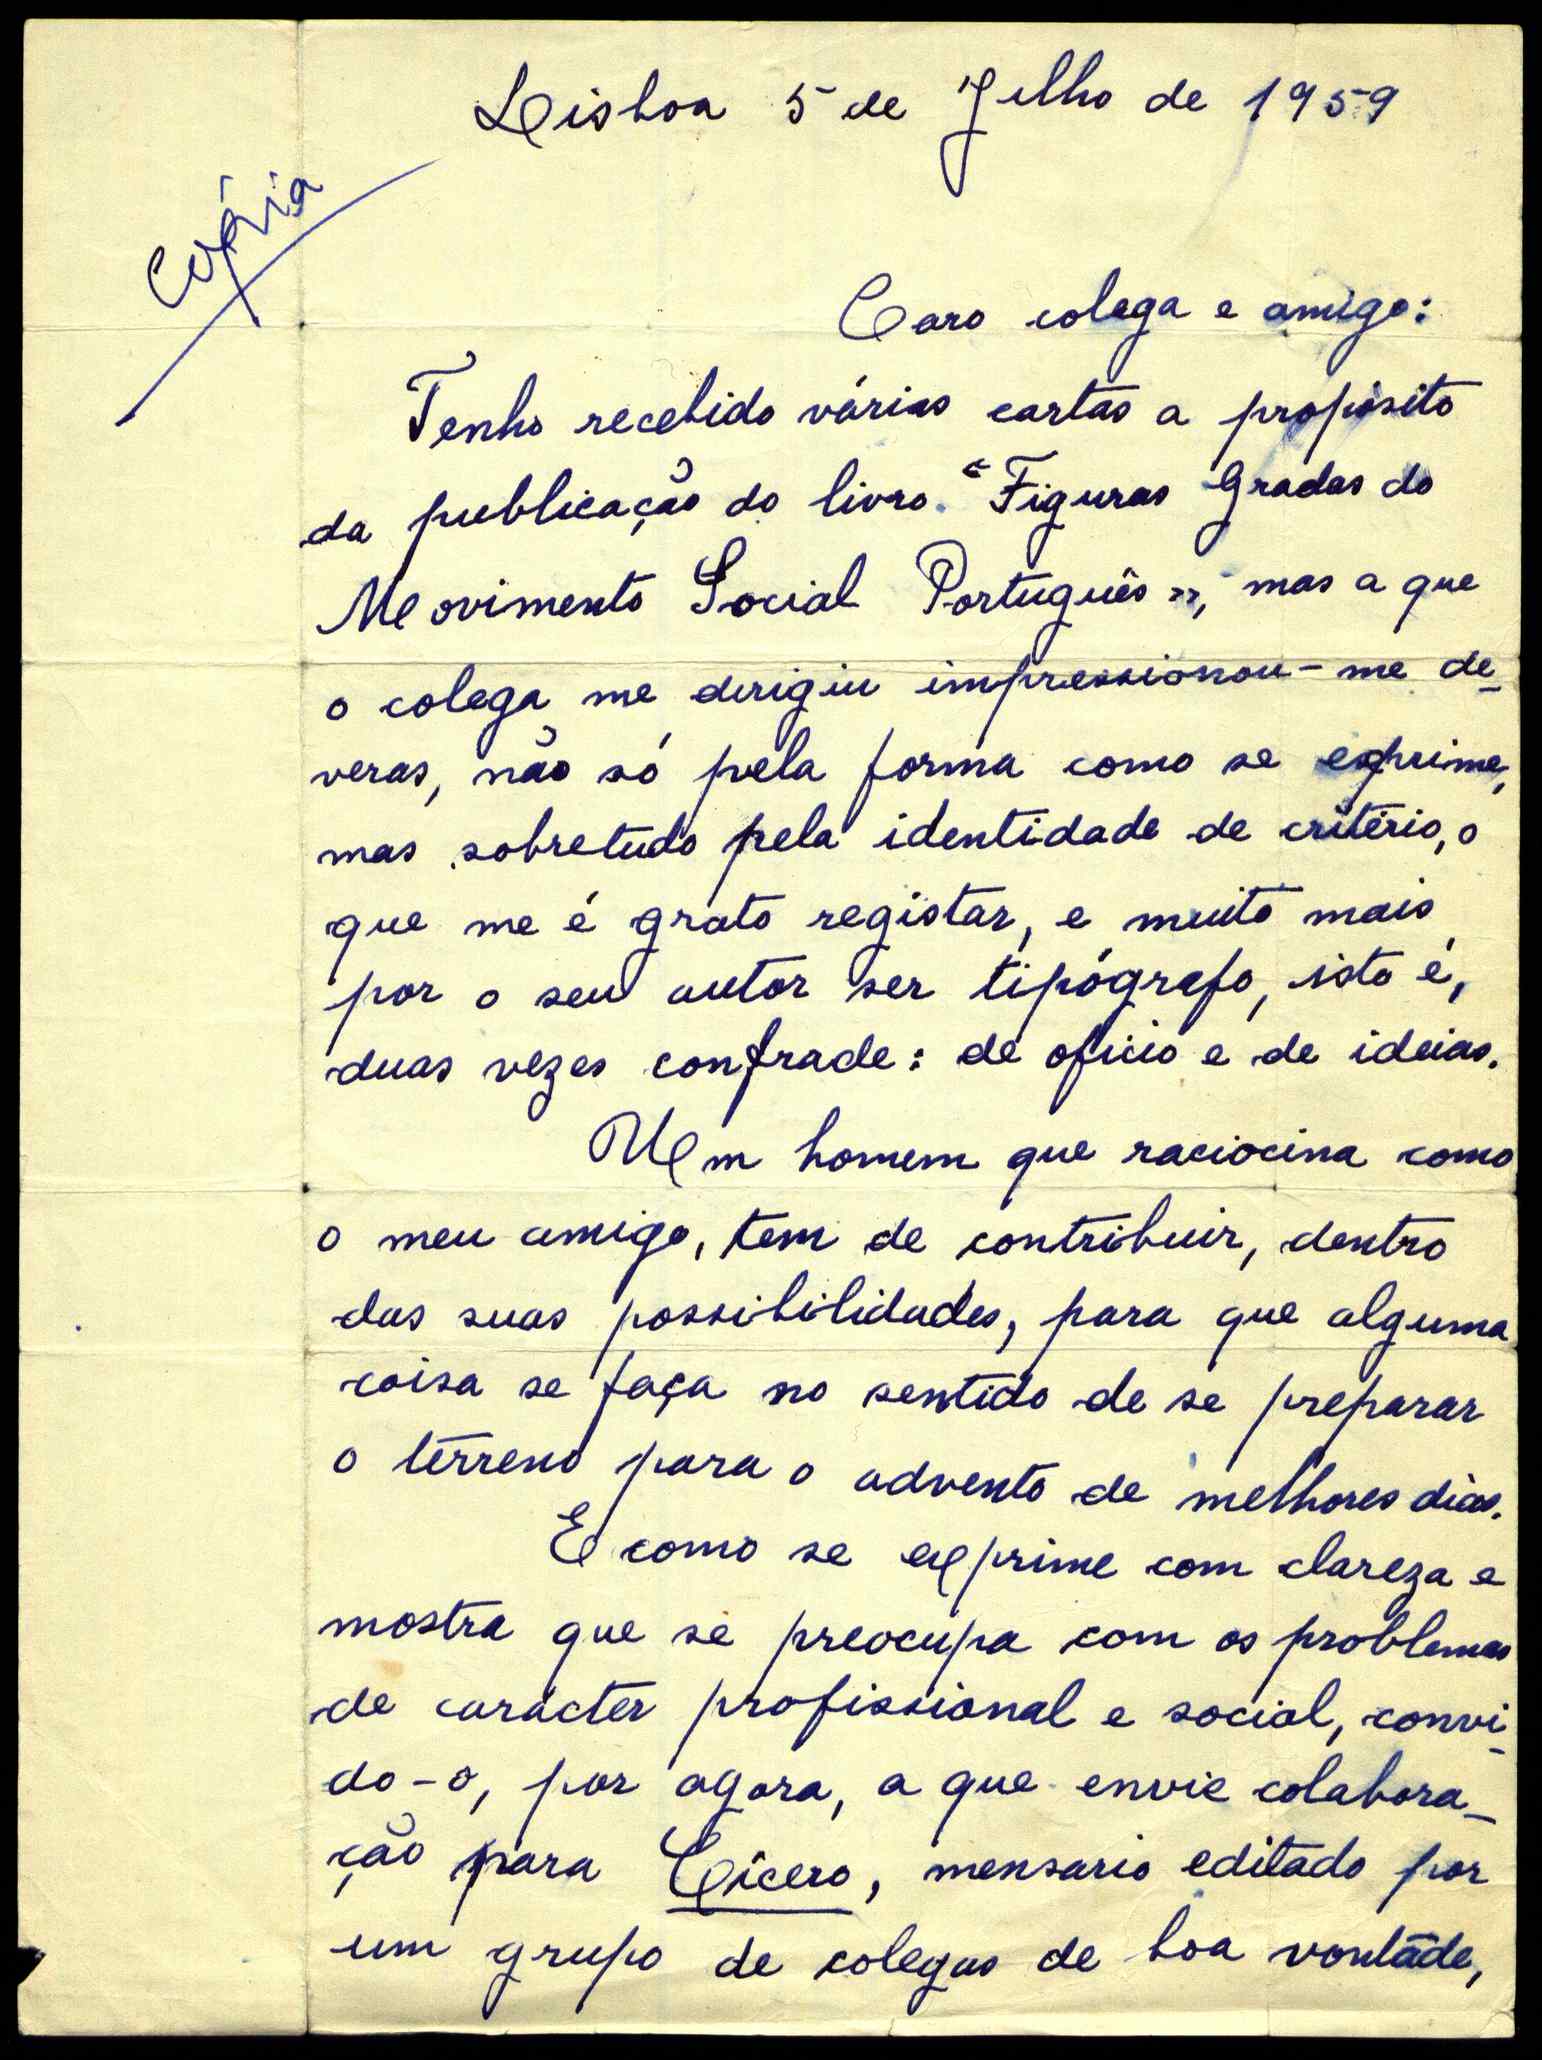 Lisboa 5 de Julho de 1959
Cópia
Caro colega e amigo:
Tenho recebido várias cartas a propósito
da publicação do livro "Figuras Gradas do
Movimento Social Português», mas a que
o colega me dirigiu impressionou-me de-
veras, não só pela forma como se exprime,
mas sobretudo pela identidade de critério, o
que me é grato registar, e muito mais
por o seu autor ser tipógrafo, isto é,
duas vezes confrade: de ofício e de ideias.
Um homem que raciocina como
o meu amigo, tem de contribuir, dentro
das suas possibilidades, para que alguma
coisa se faça no sentido de se preparar
o terreno para o advento de melhores dias.
E como se exprime com clareza e
mostra que se preocupa com os problemas
de carácter profissional e social, convi-
do-o, por agora, a que envie colabora-
ção para Cícero, mensario editado por
um grupo de colegas de boa vontade,